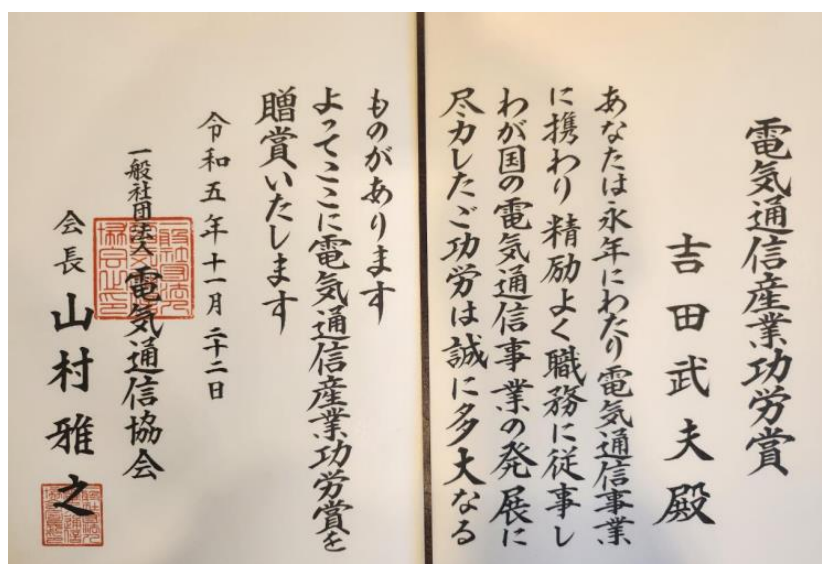 電気通信産業功労賞
吉田武夫殿
あなたは永年にわたり電気通信事業
に携わり精励よく職務に従事し
わが国の電気通信事業の発展に
尽力したご功労は誠に多大なる
ものがあります
よってここに電気通信産業功労賞を
贈賞いたします
令和五年十一月二十二日
一般社団法人電気通信協会
会長山村雅之